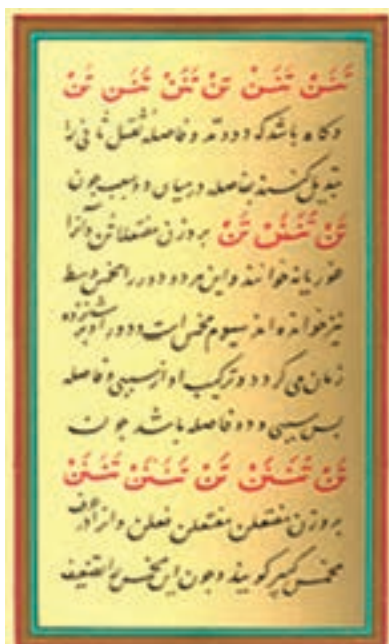 تَنَنْ تَنَنْ تَنْ تَنَنْ تَنَنْ تَنْ
وکاه باشد که دو وتد و فاصله ثقیل ثانی را
تبدیل کنند بفاصله در میان دو سبب چون
تَنْ تَنَنَنْ تَنْ بر وزن مفتعلاتن و آنرا
خوانند و این هر دو دور را مخمس وسط
نیز خوانده اند سیوم مخمس است و دور او شانزده
زمان می گردد و ترکیب او از سببی و فاصله
بس سببی و دو فاصله باشد چون
تَنْ تَنَنَنْ تَنْ تَنَنَنْ تَنَنَنْ
بر وزن مفتعلن مفتعلن فعلن و از
مخمس کبیر کویند و چون این مخمس را تضعیف